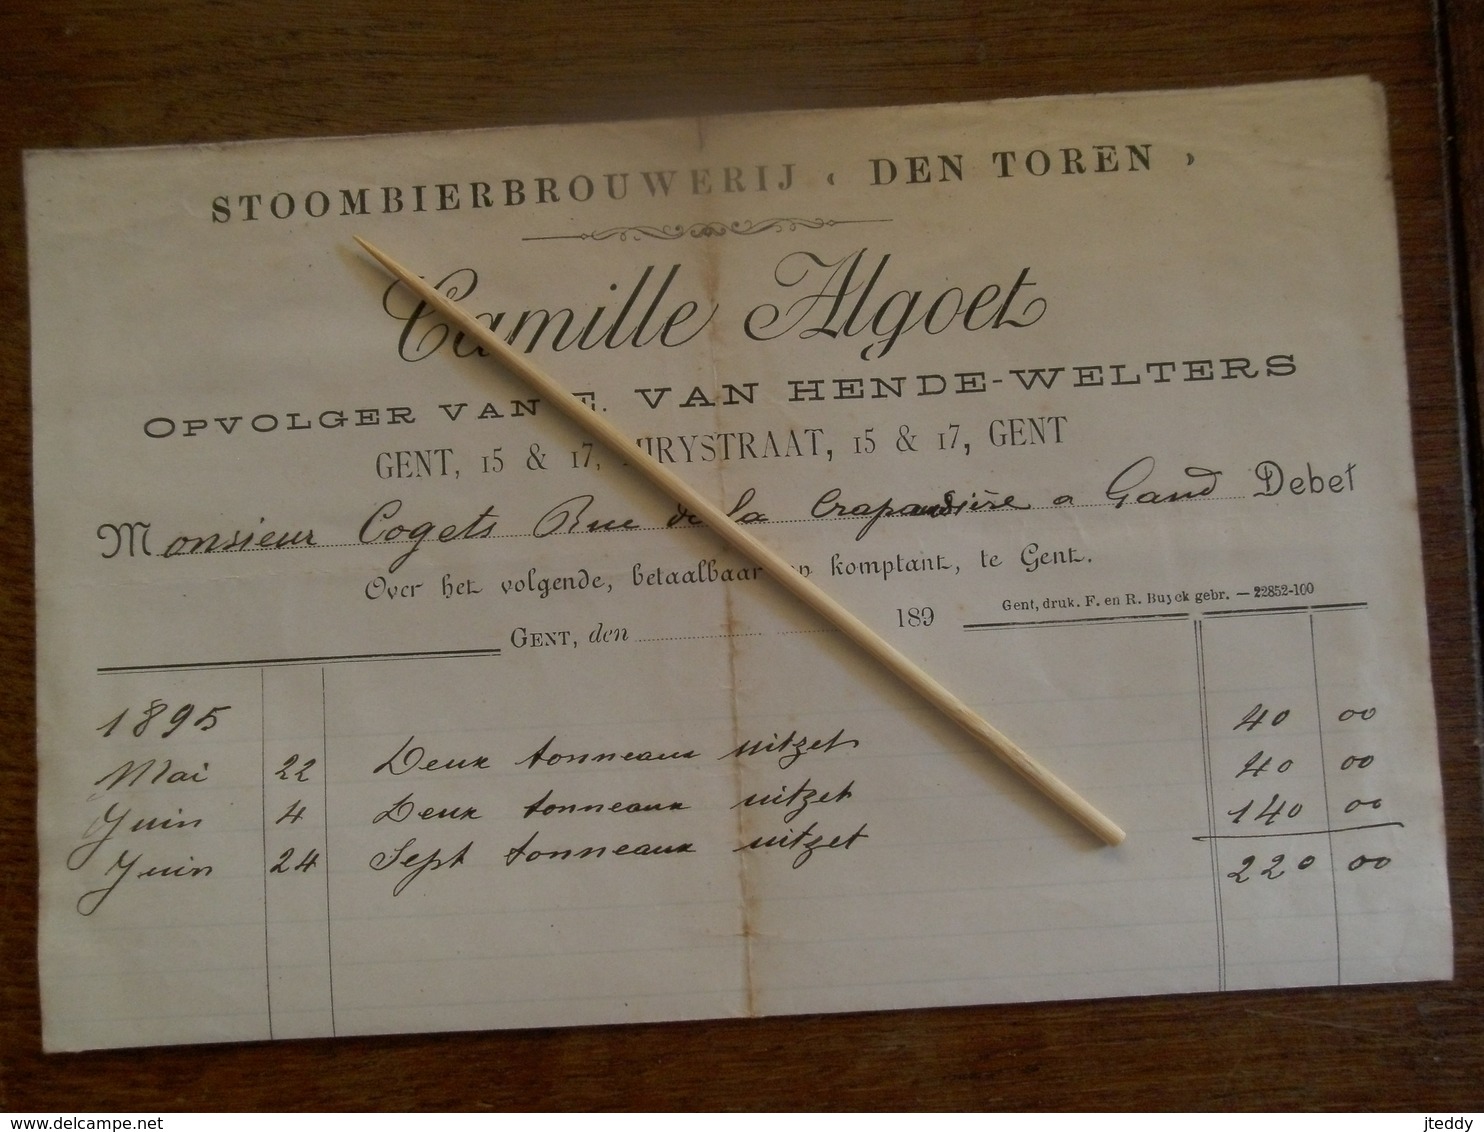 STOOMBIERBROUWERIJ ‹ DEN TOREN ›
Camille Algoet
OPVOLGER VAN E. VAN HENDE-WELTERS
GENT, 15 & 17, JURYSTRAAT, 15 & 17, GENT
Monsieur Cogets Rue de la Crapaudière a Gand Debet
Over het volgende, betaalbaar op komptant, te Gent.
Gent, druk. F. en R. Buyck gebr. — 22852-100
GENT, den 189
1895
Mai 22 Deux tonneaux uitzet 40 00
Juin 4 Deux tonneaux uitzet 40 00
Juin 24 Sept tonneaux uitzet 140 00
220 00
delcampe.net
jteddy